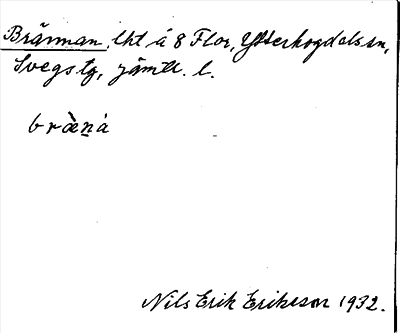 Brännan, lht å 8 Flor, Ytterhogdals sn,
Svegs tg, Jämtl. l.
bræ̀ṉá
Nils Erik Erikson 1932.